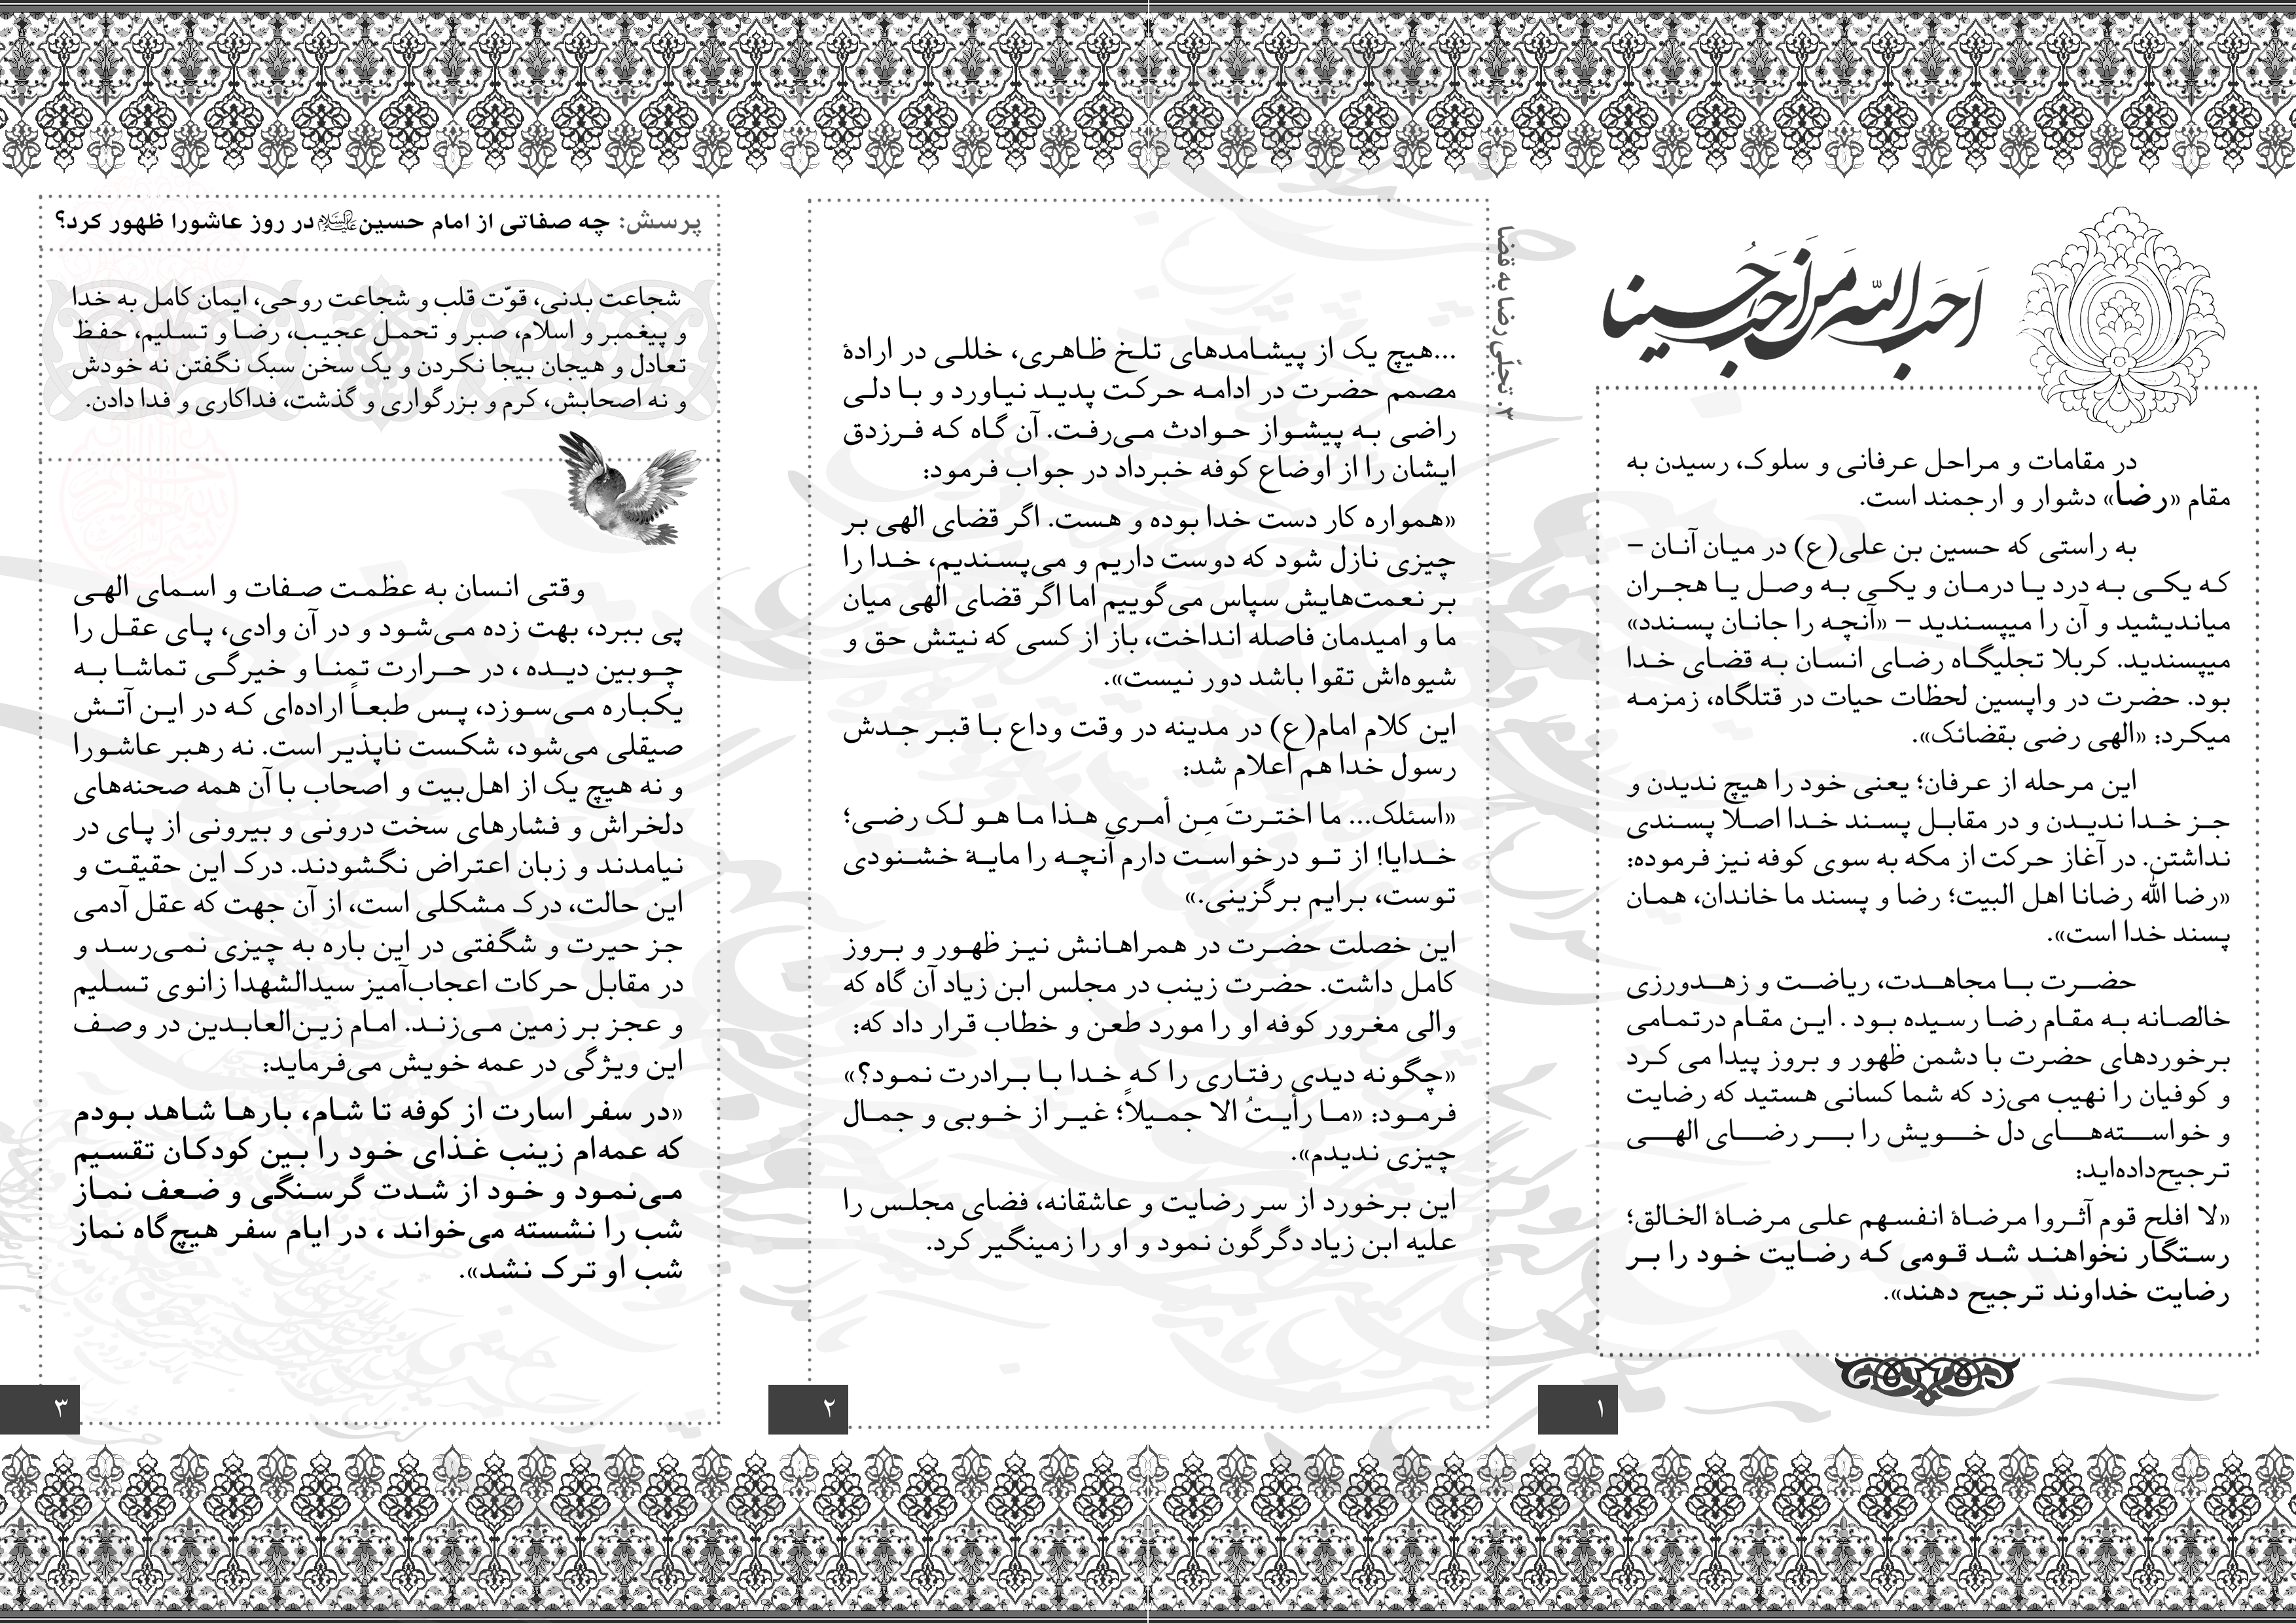 احب الله من احب حسینا
در مقامات و مراحل عرفانی و سلوک، رسیدن به
مقام «رضا» دشوار و ارجمند است.
به راستی که حسین بن علی(ع) در میان آنان –
که یکی به درد یا درمان و یکی به وصل یا هجران
میاندیشید و آن را میپسندید – «آنچه را جانان پسندد»
میپسندید. کربلا تجلیگاه رضای انسان به قضای خدا
بود. حضرت در واپسین لحظات حیات در قتلگاه، زمزمه
میکرد: «الهی رضی بقضائک».
این مرحله از عرفان؛ یعنی خود را هیچ ندیدن و
جز خدا ندیدن و در مقابل پسند خدا اصلًا پسندی
نداشتن. در آغاز حرکت از مکه به سوی کوفه نیز فرموده:
«رضا الله رضانا اهل البیت؛ رضا و پسند ما خاندان، همان
پسند خدا است».
حضرت با مجاهدت، ریاضت و زهدورزی
خالصانه به مقام رضا رسیده بود . این مقام درتمامی
برخوردهای حضرت با دشمن ظهور و بروز پیدا می کرد
و کوفیان را نهیب می‌زد که شما کسانی هستید که رضایت
و خواسته‌های دل خویش را بر رضای الهی
ترجیح‌داده‌اید:
«لا افلح قوم آثروا مرضاة انفسهم علی مرضاة الخالق؛
رستگار نخواهند شد قومی که رضایت خود را بر
رضایت خداوند ترجیح دهند».
۱
۳. تجلّی رضا به قضا
...هیچ یک از پیشامدهای تلخ ظاهری، خللی در ارادهٔ
مصمم حضرت در ادامه حرکت پدید نیاورد و با دلی
راضی به پیشواز حوادث می‌رفت. آن گاه که فرزدق
ایشان را از اوضاع کوفه خبرداد در جواب فرمود:
«همواره کار دست خدا بوده و هست. اگر قضای الهی بر
چیزی نازل شود که دوست داریم و می‌پسندیم، خدا را
بر نعمت‌هایش سپاس می‌گوییم اما اگر قضای الهی میان
ما و امیدمان فاصله انداخت، باز از کسی که نیتش حق و
شیوه‌اش تقوا باشد دور نیست».
این کلام امام(ع) در مدینه در وقت وداع با قبر جدش
رسول خدا هم اعلام شد:
«اسئلک... ما اخترتَ مِن أمری هذا ما هو لک رضی؛
خدایا! از تو درخواست دارم آنچه را مایهٔ خشنودی
توست، برایم برگزینی.»
این خصلت حضرت در همراهانش نیز ظهور و بروز
کامل داشت. حضرت زینب در مجلس ابن زیاد آن گاه که
والی مغرور کوفه او را مورد طعن و خطاب قرار داد که:
«چگونه دیدی رفتاری را که خدا با برادرت نمود؟»
فرمود: «ما رأیتُ الا جمیلاً؛ غیر از خوبی و جمال
چیزی ندیدم».
این برخورد از سر رضایت و عاشقانه، فضای مجلس را
علیه ابن زیاد دگرگون نمود و او را زمینگیر کرد.
۲
پرسش: چه صفاتی از امام حسین علیه‌السلام در روز عاشورا ظهور کرد؟
شجاعت بدنی، قوّت قلب و شجاعت روحی، ایمان کامل به خدا
و پیغمبر و اسلام، صبر و تحمل عجیب، رضا و تسلیم، حفظ
تعادل و هیجان بیجا نکردن و یک سخن سبک نگفتن نه خودش
و نه اصحابش، کرم و بزرگواری و گذشت، فداکاری و فدا دادن.
وقتی انسان به عظمت صفات و اسمای الهی
پی ببرد، بهت زده می‌شود و در آن وادی، پای عقل را
چوبین دیده ، در حرارت تمنا و خیرگی تماشا به
یکباره می‌سوزد، پس طبعاً اراده‌ای که در این آتش
صیقلی می‌شود، شکست ناپذیر است. نه رهبر عاشورا
و نه هیچ یک از اهل‌بیت و اصحاب با آن همه صحنه‌های
دلخراش و فشارهای سخت درونی و بیرونی از پای در
نیامدند و زبان اعتراض نگشودند. درک این حقیقت و
این حالت، درک مشکلی است، از آن جهت که عقل آدمی
جز حیرت و شگفتی در این باره به چیزی نمی‌رسد و
در مقابل حرکات اعجاب‌آمیز سیدالشهدا زانوی تسلیم
و عجز بر زمین می‌زند. امام زین‌العابدین در وصف
این ویژگی در عمه خویش می‌فرماید:
«در سفر اسارت از کوفه تا شام، بارها شاهد بودم
که عمه‌ام زینب غذای خود را بین کودکان تقسیم
می‌نمود و خود از شدت گرسنگی و ضعف نماز
شب را نشسته می‌خواند ، در ایام سفر هیچ‌گاه نماز
شب او ترک نشد».
۳